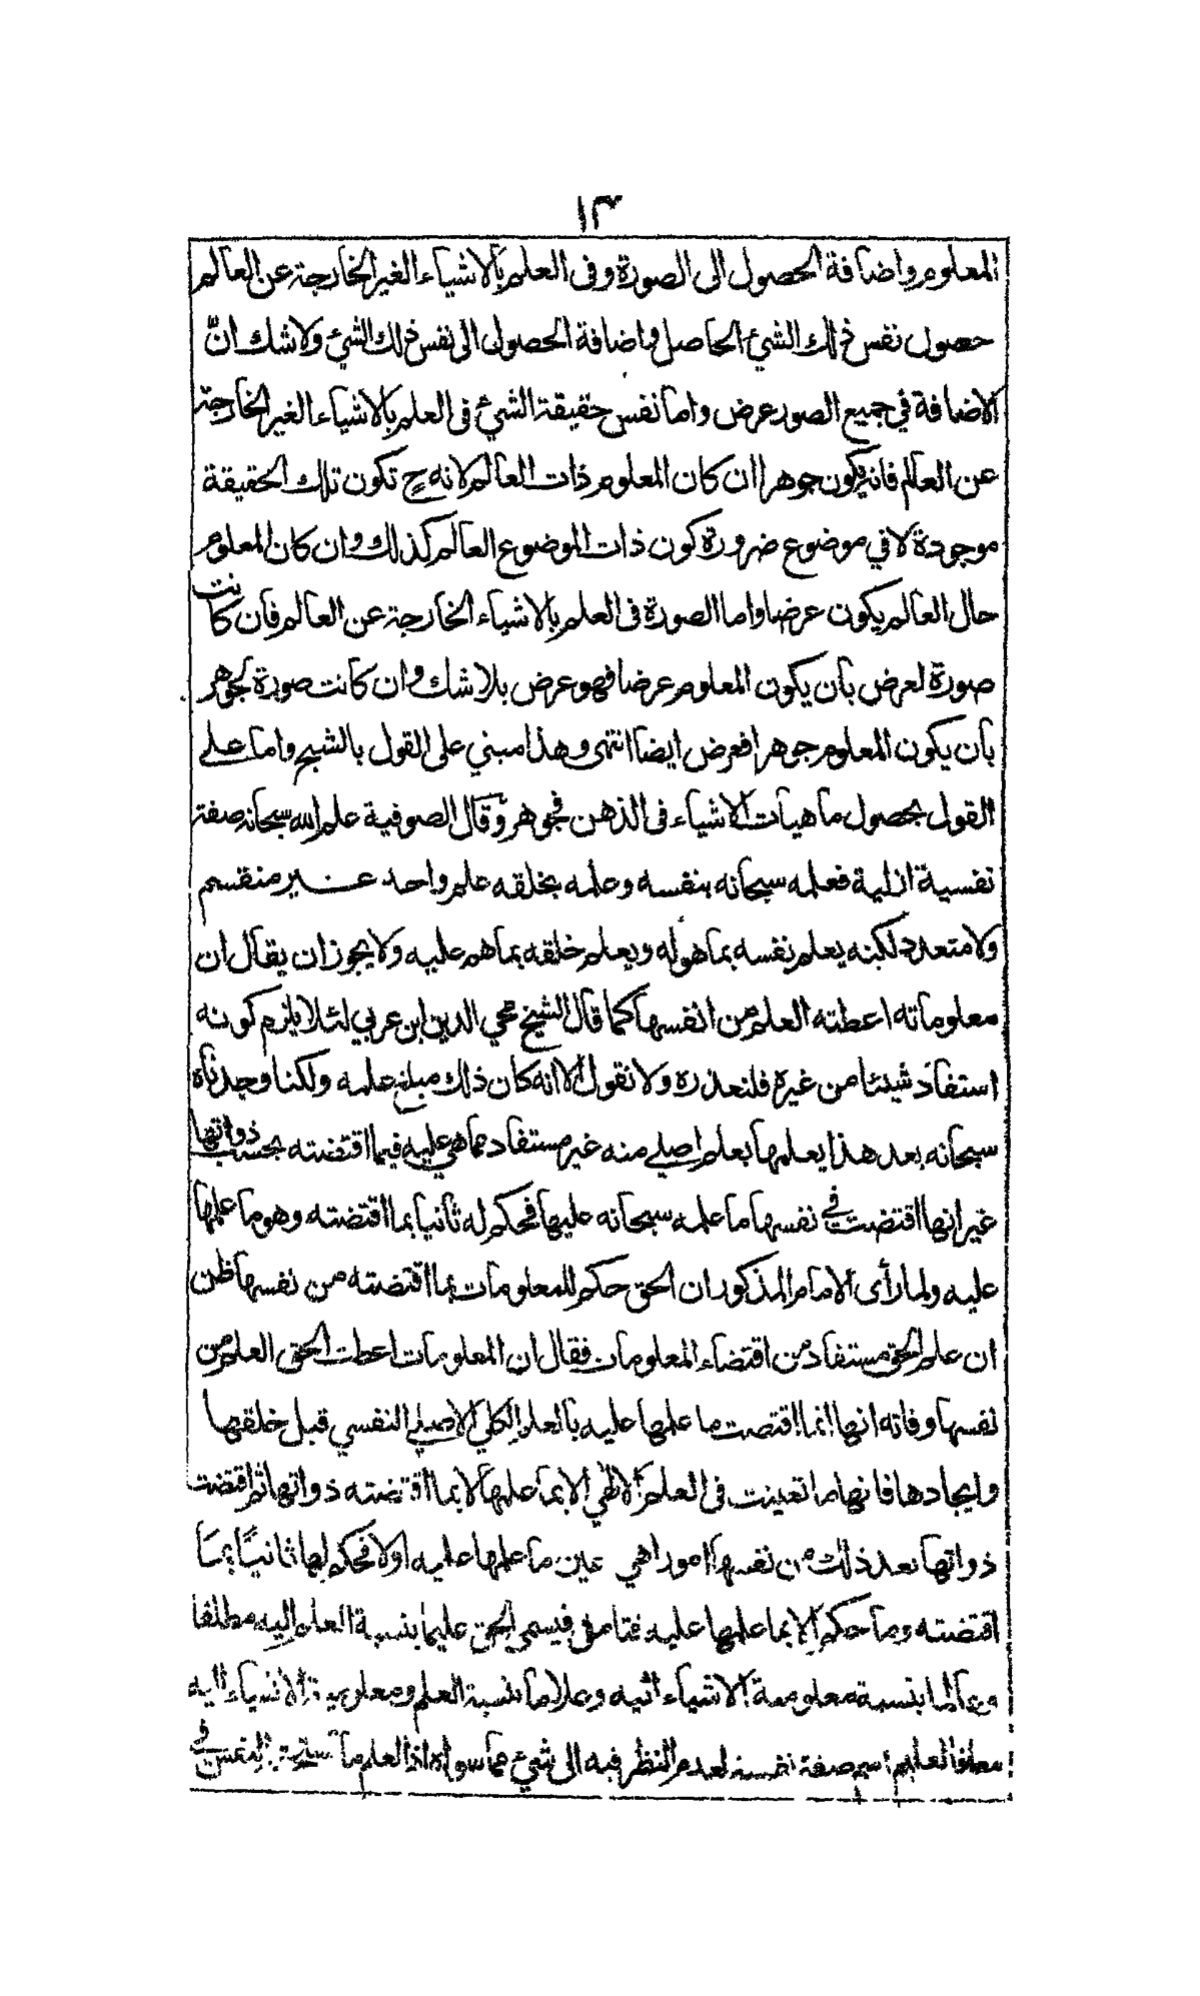 ١٣
المعلوم واضافة الحصول الى الصورة وفى العلم بالاشياء الغير الخارجة عن العالم
حصول نفس ذلك الشئ الحاصل واضافة الحصول الى نفس ذلك الشئ ولا شك انّ
الاضافة في جميع الصور عرض واما نفس حقيقة الشئ فى العلم بالاشياء الغير الخارجة
عن العالم فانه يكون جوهرا ان كان المعلوم ذات العالم لانه ح تكون تلك الحقيقة
موجودة لا في موضوع ضرورة كون ذات الموضوع العالم كذلك وان كان المعلوم
حال العالم يكون عرضا واما الصورة فى العلم بالاشياء الخارجة عن العالم فان كانت
صورة لعرض بان يكون المعلوم عرضا فهو عرض بلا شك وان كانت صورة لجوهر
بان يكون المعلوم جوهرا فعرض ايضا انتهى وهذا مبني على القول بالشبح واما على
القول بحصول ماهيات الاشياء فى الذهن فجوهر وقال الصوفية علم الله سبحانه صفة
نفسية ازلية فعلمه سبحانه بنفسه وعلمه بخلقه علم واحد غير منقسم
ولا متعدد لكنه يعلم نفسه بما هو له ويعلم خلقه بما هم عليه ولا يجوز ان يقال ان
معلوماته اعطته العلم من انفسها كما قال الشيخ محي الدين ابن عربي لئلا يلزم كونه
استفاد شيئا من غيره فلنعذره ولا نقول الا انه كان ذلك مبلغ علمه ولكنا وجدناه
سبحانه بعد هذا يعلمها بعلم اصلي منه غير مستفاد مما هي عليه فيما اقتضته بحسب ذواتها
غير انها اقتضت في نفسها ما علمه سبحانه عليها فحكم له ثانيا بما اقتضته وهو ما علمها
عليه ولما رأى الامام المذكور ان الحق حكم للمعلومات بما اقتضته من نفسها ظن
ان علم الحق مستفاد من اقتضاء المعلومات فقال ان المعلومات اعطت الحق العلم من
نفسها وفاته انها انما اقتضت ما علمها عليه بالعلم الكلي الاصلي النفسي قبل خلقها
وايجادها فانها ما تعينت فى العلم الالهي الا بما علمها لا بما اقتضته ذواتها ثم اقتضت
ذواتها بعد ذلك من نفسها امورا هي عين ما علمها عليه اولا فحكم لها ثانيًا بما
اقتضته وما حكم الا بما علمها عليه فتامل فيسمى الحق عليما بنسبة العلم اليه مطلقا
وعالما بنسبة معلومية الاشياء اليه وعلاما بنسبة العلم ومعلومية الاشياء اليه
معا فالعليم اسم صفة نفسية لعدم النظر فيه الى شئ مما سواه اذ العلم ما النفس في